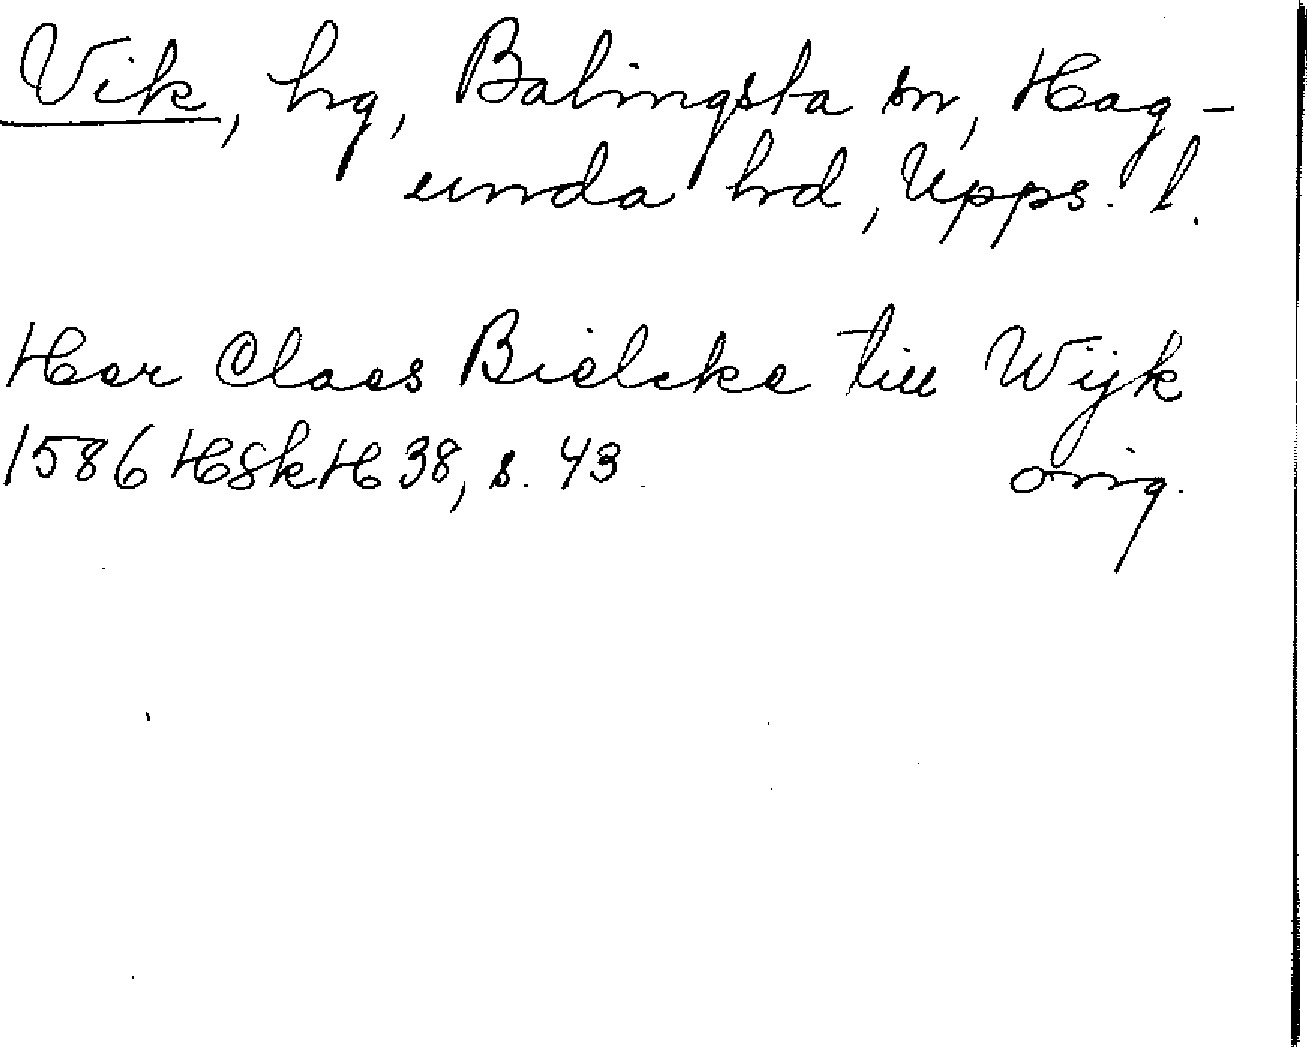 Vik, hg, Balingsta sn, Hag-
unda hd, Upps. l.
Her Claes Bielcke till Wijk
1586 HSkH 38, s. 43. orig.